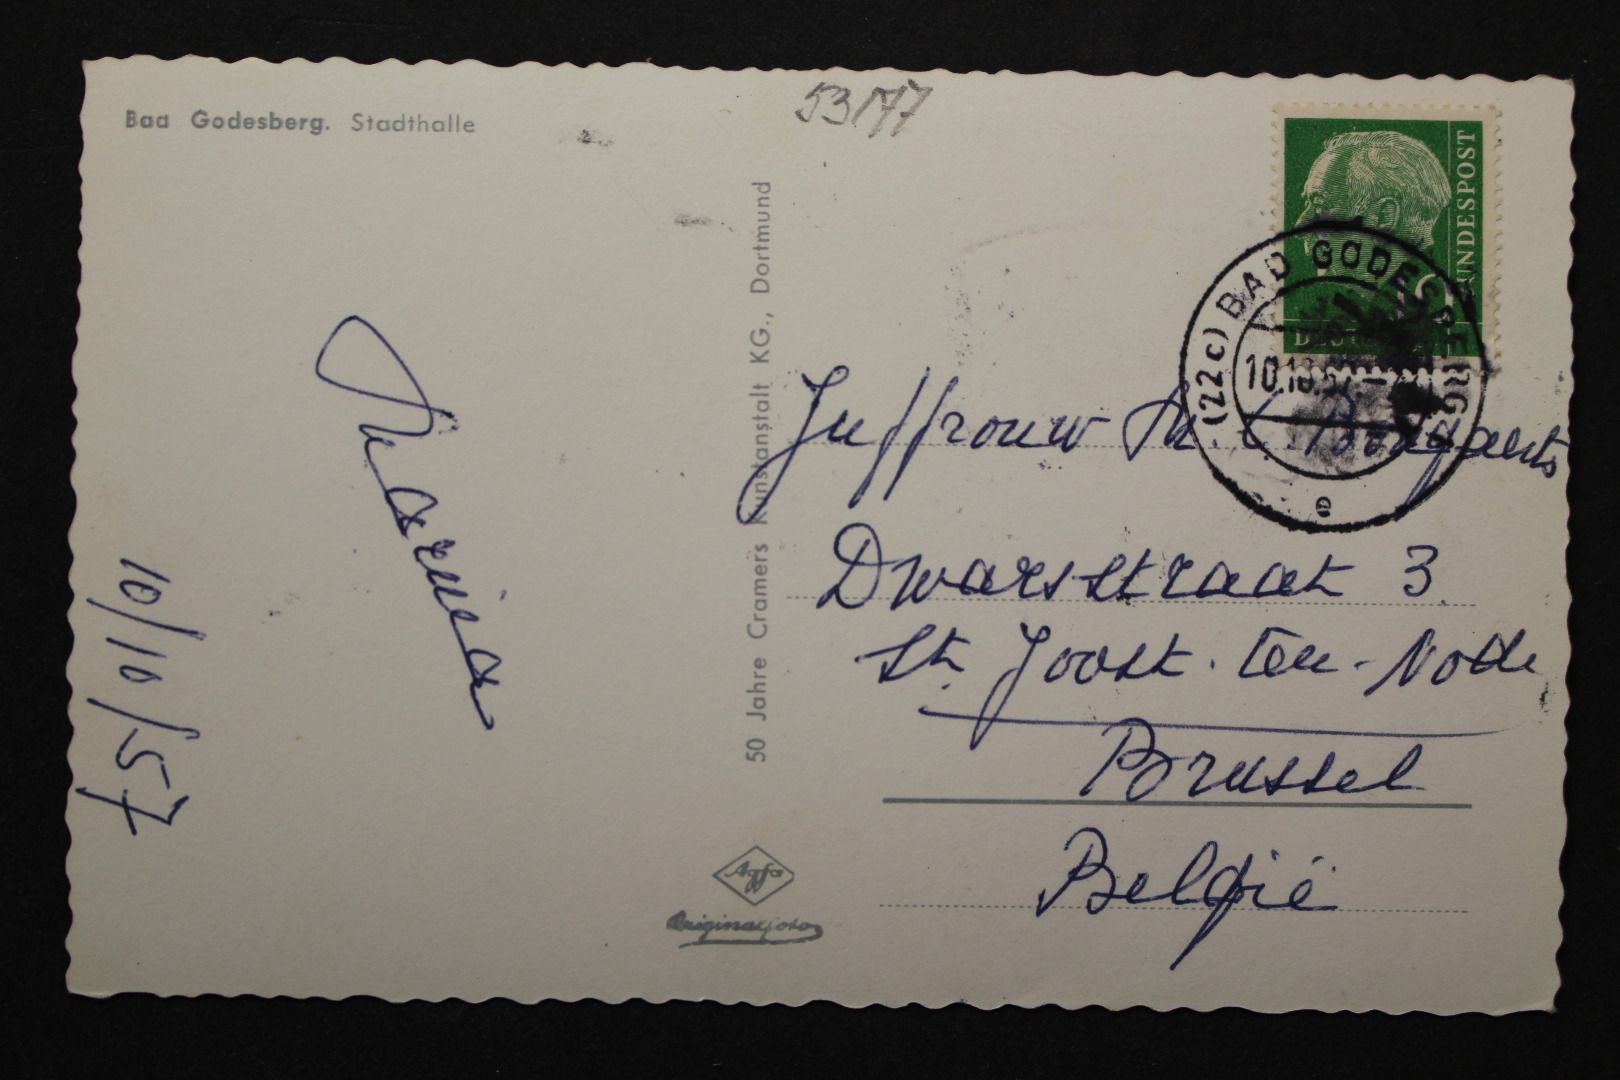 Bad Godesberg. Stadthalle
53177
50 Jahre Cramers Kunstanstalt KG., Dortmund
BUNDESPOST
(22c) BAD GODESBERG
10.10.57
e
Juffrouw
Dwarsstraat 3
St. Joost-ten-Node
Brussel
België
Maria
10/10/57
Agfa
Originalfoto